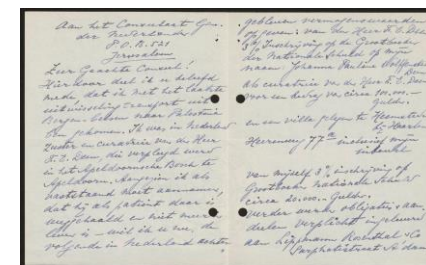 Aan het Consulaat Gen.
der Nederlanden
P.O.B. 121
Jerusalem
Zeer Geachte Consul!
Hierdoor deel ik u beleefd
mede, dat ik met het laatste
uitwisseling transport uit
Bergen-Belsen naar Palestina
ben gekomen. Ik was in Nederland
zuster en curatrice van de Heer
die verpleegd werd
in het Apeldoornsche Bosch te
Apeldoorn. Aangezien ik als
vaststaand moet aannemen,
dat hij als patient daar is
weggehaald en niet meer in
leven is - wil ik u nu, de
volgende in Nederland achter-
gebleven vermogenswaarden
opgeven: van den Heer
3% Inschrijving op de Grootboek
der Nationale Schuld op mijn
naam Johanna
als curatrice van de Heer
voor een bedrag van circa
Gulden.
en een villa gelegen te Heemstede
bij Haarlem
Heerenweg 77 inclusief mijn
van mijzelf 3% inschrijving op
Grootboek Nationale Schuld
circa Gulden.
verder werden obligaties, aan-
deelen verplicht ingeleverd
aan Lippmann Rosenthal & Co
Sarphatistraat A'dam